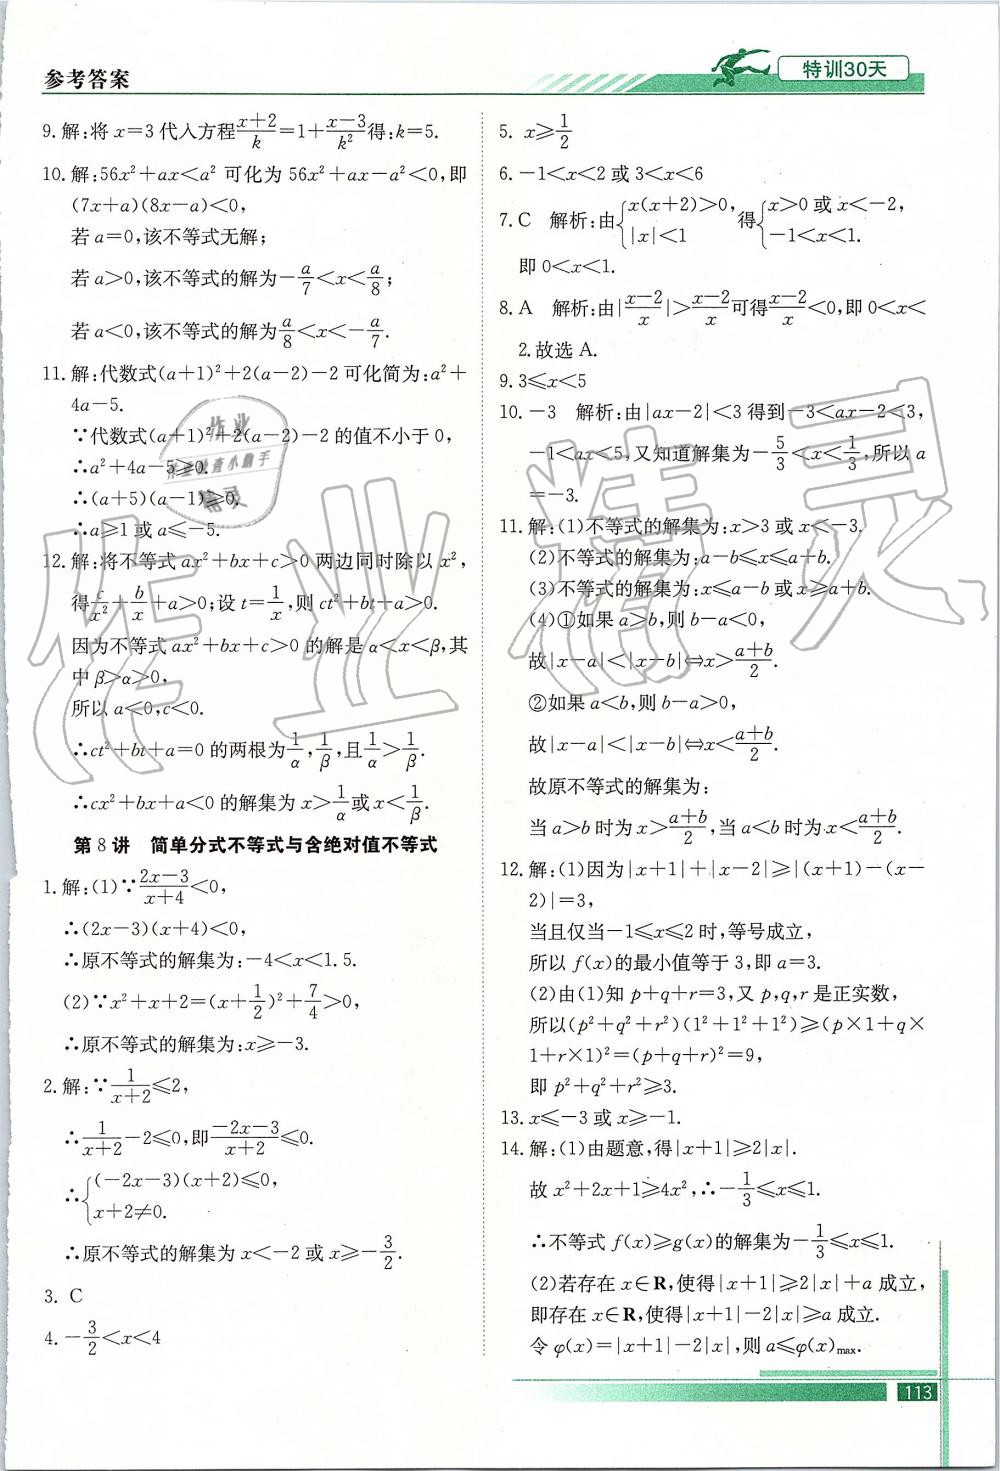 参考答案
特训30天
9.解:将 x=3 代入方程(x+2)/k=1+(x-3)/k²得:k=5.
10.解:56x²+ax<a² 可化为 56x²+ax-a²<0,即
(7x+a)(8x-a)<0,
若 a=0,该不等式无解;
若 a>0,该不等式的解为-a/7<x<a/8;
若 a<0,该不等式的解为a/8<x<-a/7.
11.解:代数式(a+1)²+2(a-2)-2可化简为:a²+
4a-5.
∵代数式(a+1)²+2(a-2)-2的值不小于0,
∴a²+4a-5≥0.
∴(a+5)(a-1)≥0.
∴a≥1或a≤-5.
12.解:将不等式 ax²+bx+c>0 两边同时除以 x²,
得c/x²+b/x+a>0;设 t=1/x,则 ct²+bt+a>0.
因为不等式 ax²+bx+c>0 的解是 α<x<β,其
中 β>α>0,
所以 a<0,c<0.
∴ct²+bt+a=0 的两根为1/α,1/β,且1/α>1/β.
∴cx²+bx+a<0 的解集为 x>1/α或 x<1/β.
第 8 讲 简单分式不等式与含绝对值不等式
1.解:(1)∵(2x-3)/(x+4)<0,
∴(2x-3)(x+4)<0,
∴原不等式的解集为:-4<x<1.5.
(2)∵x²+x+2=(x+1/2)²+7/4>0,
∴原不等式的解集为:x≥-3.
2.解:∵1/(x+2)≤2,
∴1/(x+2)-2≤0,即(-2x-3)/(x+2)≤0.
∴{(-2x-3)(x+2)≤0,
x+2≠0.
∴原不等式的解集为 x<-2 或 x≥-3/2.
3. C
4.-3/2<x<4
5. x≥1/2
6.-1<x<2 或 3<x<6
7.C 解析:由{x(x+2)>0, 得{x>0 或 x<-2,
|x|<1 -1<x<1.
即 0<x<1.
8.A 解析:由|(x-2)/x|>(x-2)/x可得(x-2)/x<0,即 0<x<
2.故选 A.
9.3≤x<5
10.-3 解析:由|ax-2|<3得到-3<ax-2<3,
-1<ax<5,又知道解集为-5/3<x<1/3,所以 a
=-3.
11.解:(1)不等式的解集为:x>3或x<-3.
(2)不等式的解集为:a-b≤x≤a+b.
(3)不等式的解集为:x≤a-b或x≥a+b.
(4)①如果a>b,则b-a<0,
故|x-a|<|x-b|⇔x>(a+b)/2.
②如果 a<b,则 b-a>0,
故|x-a|<|x-b|⇔x<(a+b)/2.
故原不等式的解集为:
当 a>b时为 x>(a+b)/2,当 a<b时为 x<(a+b)/2.
12.解:(1)因为|x+1|+|x-2|≥|(x+1)-(x-
2)|=3,
当且仅当-1≤x≤2时,等号成立,
所以 f(x)的最小值等于3,即a=3.
(2)由(1)知 p+q+r=3,又 p,q,r 是正实数,
所以(p²+q²+r²)(1²+1²+1²)≥(p×1+q×
1+r×1)²=(p+q+r)²=9,
即 p²+q²+r²≥3.
13. x≤-3 或 x≥-1.
14.解:(1)由题意,得|x+1|≥2|x|.
故 x²+2x+1≥4x²,∴-1/3≤x≤1.
∴不等式 f(x)≥g(x)的解集为-1/3≤x≤1.
(2)若存在 x∈R,使得|x+1|≥2|x|+a 成立,
即存在 x∈R,使得|x+1|-2|x|≥a 成立.
令 φ(x)=|x+1|-2|x|,则 a≤φ(x)max.
113
作业精灵